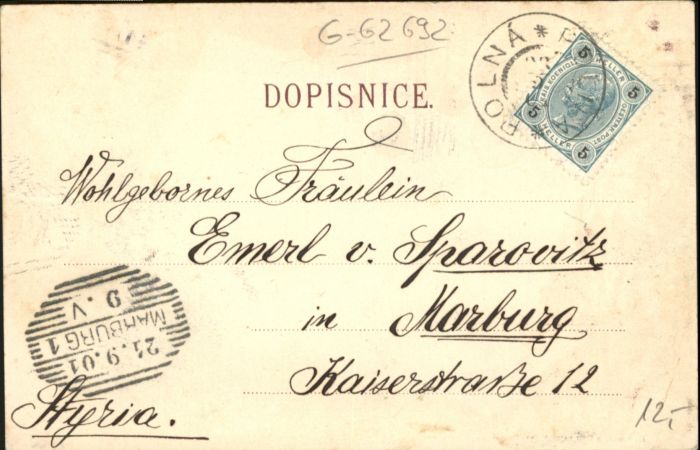 G-62 692
DOPISNICE.
POLNÁ
5
5
5
5
HELLER
HELLER
Wohlgebornes Fräulein
Emerl v. Sparovitz
in Marburg
Kaiserstraße 12
Styria.
MARBURG 1
21.9.01
9.V
12,-